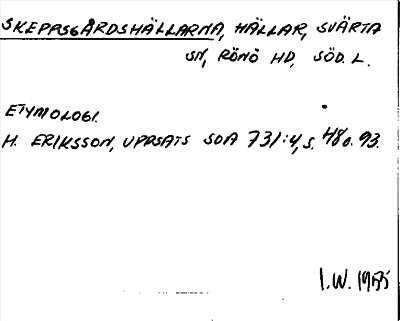 SKEPPSGÅRDSHÄLLARNA, HÄLLAR, SVÄRTA
SN, RÖNÖ HD, SÖD. L.
ETYMOLOGI.
H. ERIKSSON, UPPSATS SOA 731:4, S. 48 o. 93.
I.W. 1975